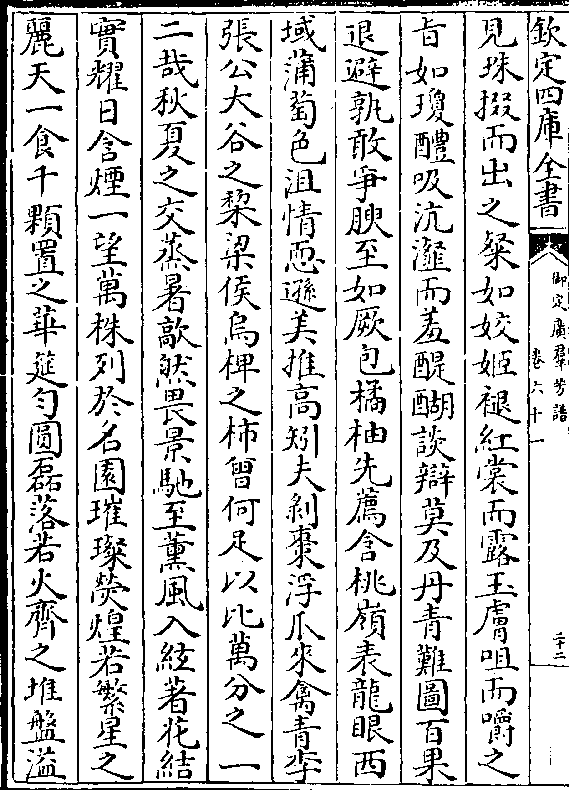 欽定四庫全書
御定廣羣芳譜
卷六十一
二十二
見珠掇而出之粲如姣姬褪紅裳而露玉膚咀而嚼之
旨如瓊醴吸沆瀣而羞醍醐談辯莫及丹青難圖百果
退避孰敢爭腴至如厥包橘柚先薦含桃嶺表龍眼西
域蒲萄色沮情恧遜美推高矧夫剝棗浮瓜來禽青李
張公大谷之棃梁侯烏椑之柿曾何足以比萬分之一
二哉秋夏之交蒸暑歊然畏景馳至薰風入絃著花結
實耀日含煙一望萬株列於名園璀璨熒煌若繁星之
麗天一食千顆置之華筵勻圓磊落若火齊之堆盤溢